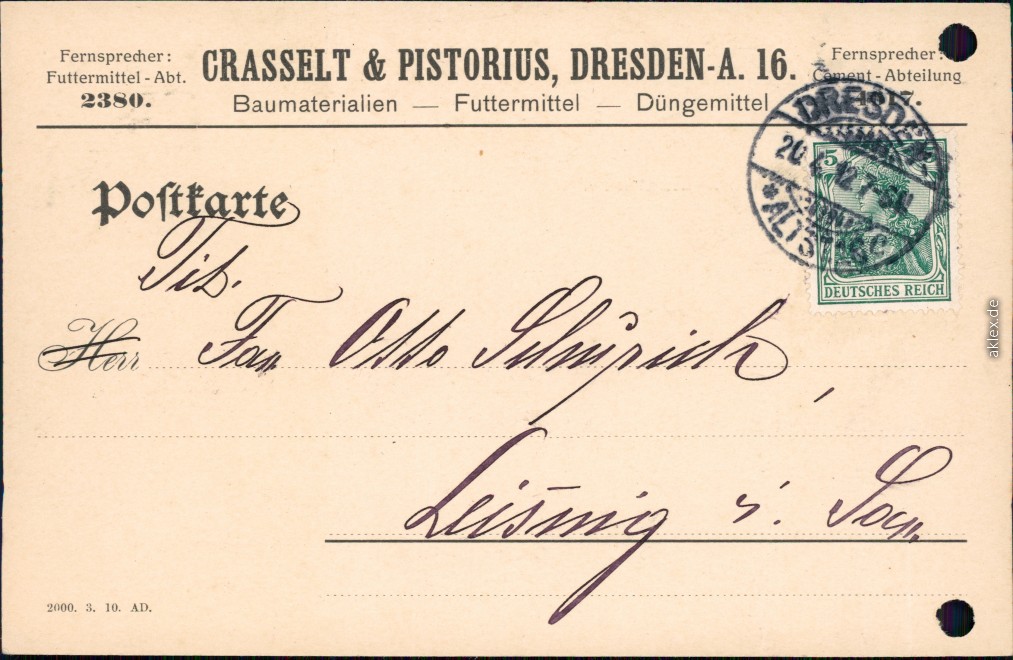 Fernsprecher:
Futtermittel-Abt.
2380.
CRASSELT & PISTORIUS, DRESDEN-A. 16.
Baumaterialien — Futtermittel — Düngemittel
Fernsprecher
Cement-Abteilung
7.
DRESDEN
20.4.12.7-8
* ALTST. 
5
DEUTSCHES REICH
Poſtkarte
Tit.
Herr Fa. Otto Schurich,
Leisnig i. Sa.
2000. 3. 10. AD.
aklex.de